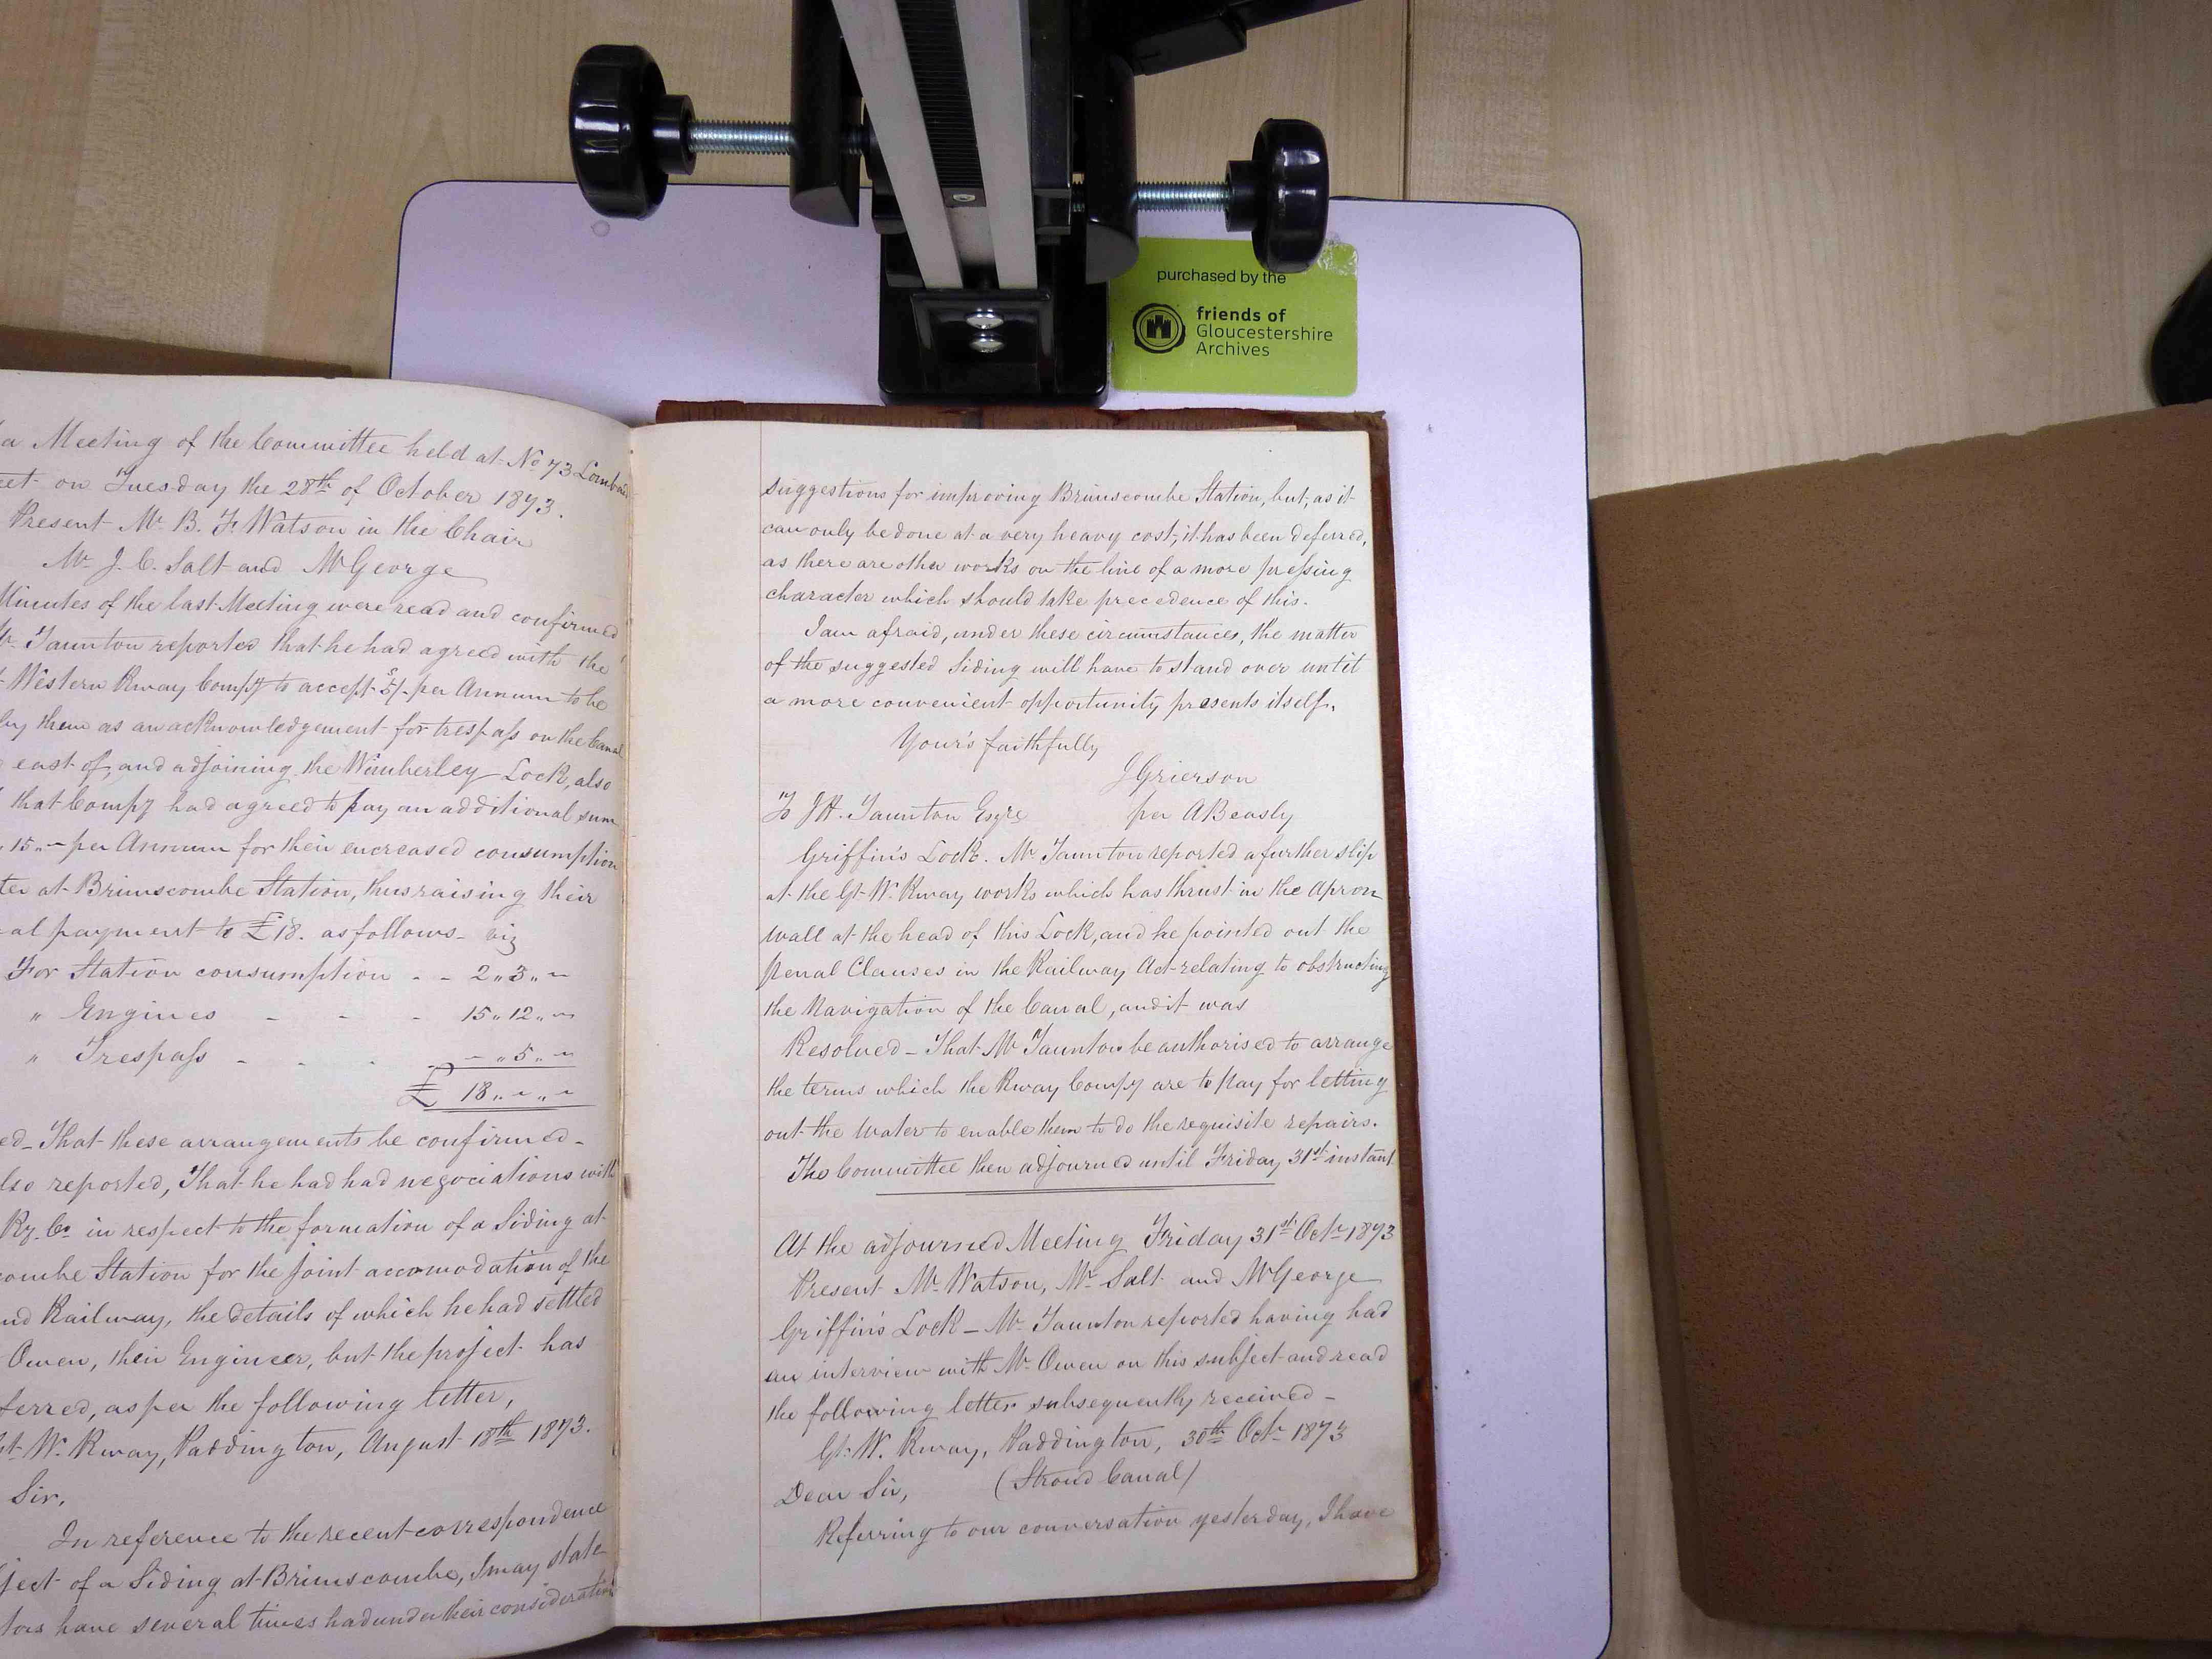 purchased by the
friends of
Gloucestershire
Archives
a Meeting of the Committee held at No 73 Lombard
eet on Tuesday the 28th of October 1873.
Present Mr B. F. Watson in the Chair
Mr J. C. Salt and Mr George
Minutes of the last Meeting were read and confirmed
Mr Taunton reported that he had agreed with the
t Western Rway Compy to accept 5/- per Annum to be
by them as an acknowledgement for trespass on the Canal
east of, and adjoining the Wimberley Lock, also
that Compy had agreed to pay an additional sum
15 "- per Annum for their encreased consumption
ter at Brimscombe Station, thus raising their
al payment to £18. as follows - viz
For Station consumption - - 2 " 3 " -
" Engines - - - 15 " 12 " -
" Trespass - - - - " 5 " -
£ 18 " - " -
ed - That these arrangements be confirmed -
lso reported, That he had had negociations with
Ry. Co in respect to the formation of a Siding at
combe Station for the joint accomodation of the
nd Railway, the details of which he had settled
Owen, their Engineer, but the project has
ferred, as per the following letter,
Gt. W. Rway, Paddington, August 18th 1873.
Sir,
In reference to the recent correspondence
ject of a Siding at Brimscombe, I may state
tors have several times had under their consideration
suggestions for improving Brimscombe Station, but, as it
can only be done at a very heavy cost, it has been deferred,
as there are other works on the line of a more pressing
character which should take precedence of this.
I am afraid, under these circumstances, the matter
of the suggested Siding will have to stand over until
a more convenient opportunity presents itself.
Your's faithfully
J Grierson
To J H. Taunton Esqre per A Beasly
Griffin's Lock. Mr Taunton reported a further slip
at the Gt. W. Rway works which has thrust in the Apron
wall at the head of this Lock, and he pointed out the
penal Clauses in the Railway Act relating to obstructing
the Navigation of the Canal, and it was
Resolved - That Mr Taunton be authorised to arrange
the terms which the Rway Compy are to pay for letting
out the Water to enable them to do the requisite repairs.
The Committee then adjourned until Friday 31st instant
At the adjourned Meeting Friday 31st Octr 1873
Present Mr Watson, Mr Salt and Mr George
Griffin's Lock - Mr Taunton reported having had
an interview with Mr Owen on this subject and read
the following letter subsequently received -
Gt. W. Rway, Paddington, 30th Octr 1873
Dear Sir, (Stroud Canal)
Referring to our conversation yesterday, I have